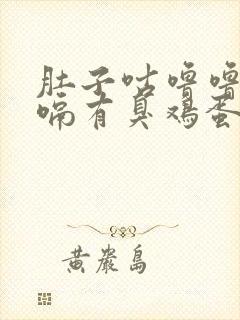 肚子咕噜噜
嗝有臭鸡蛋
黄岩岛